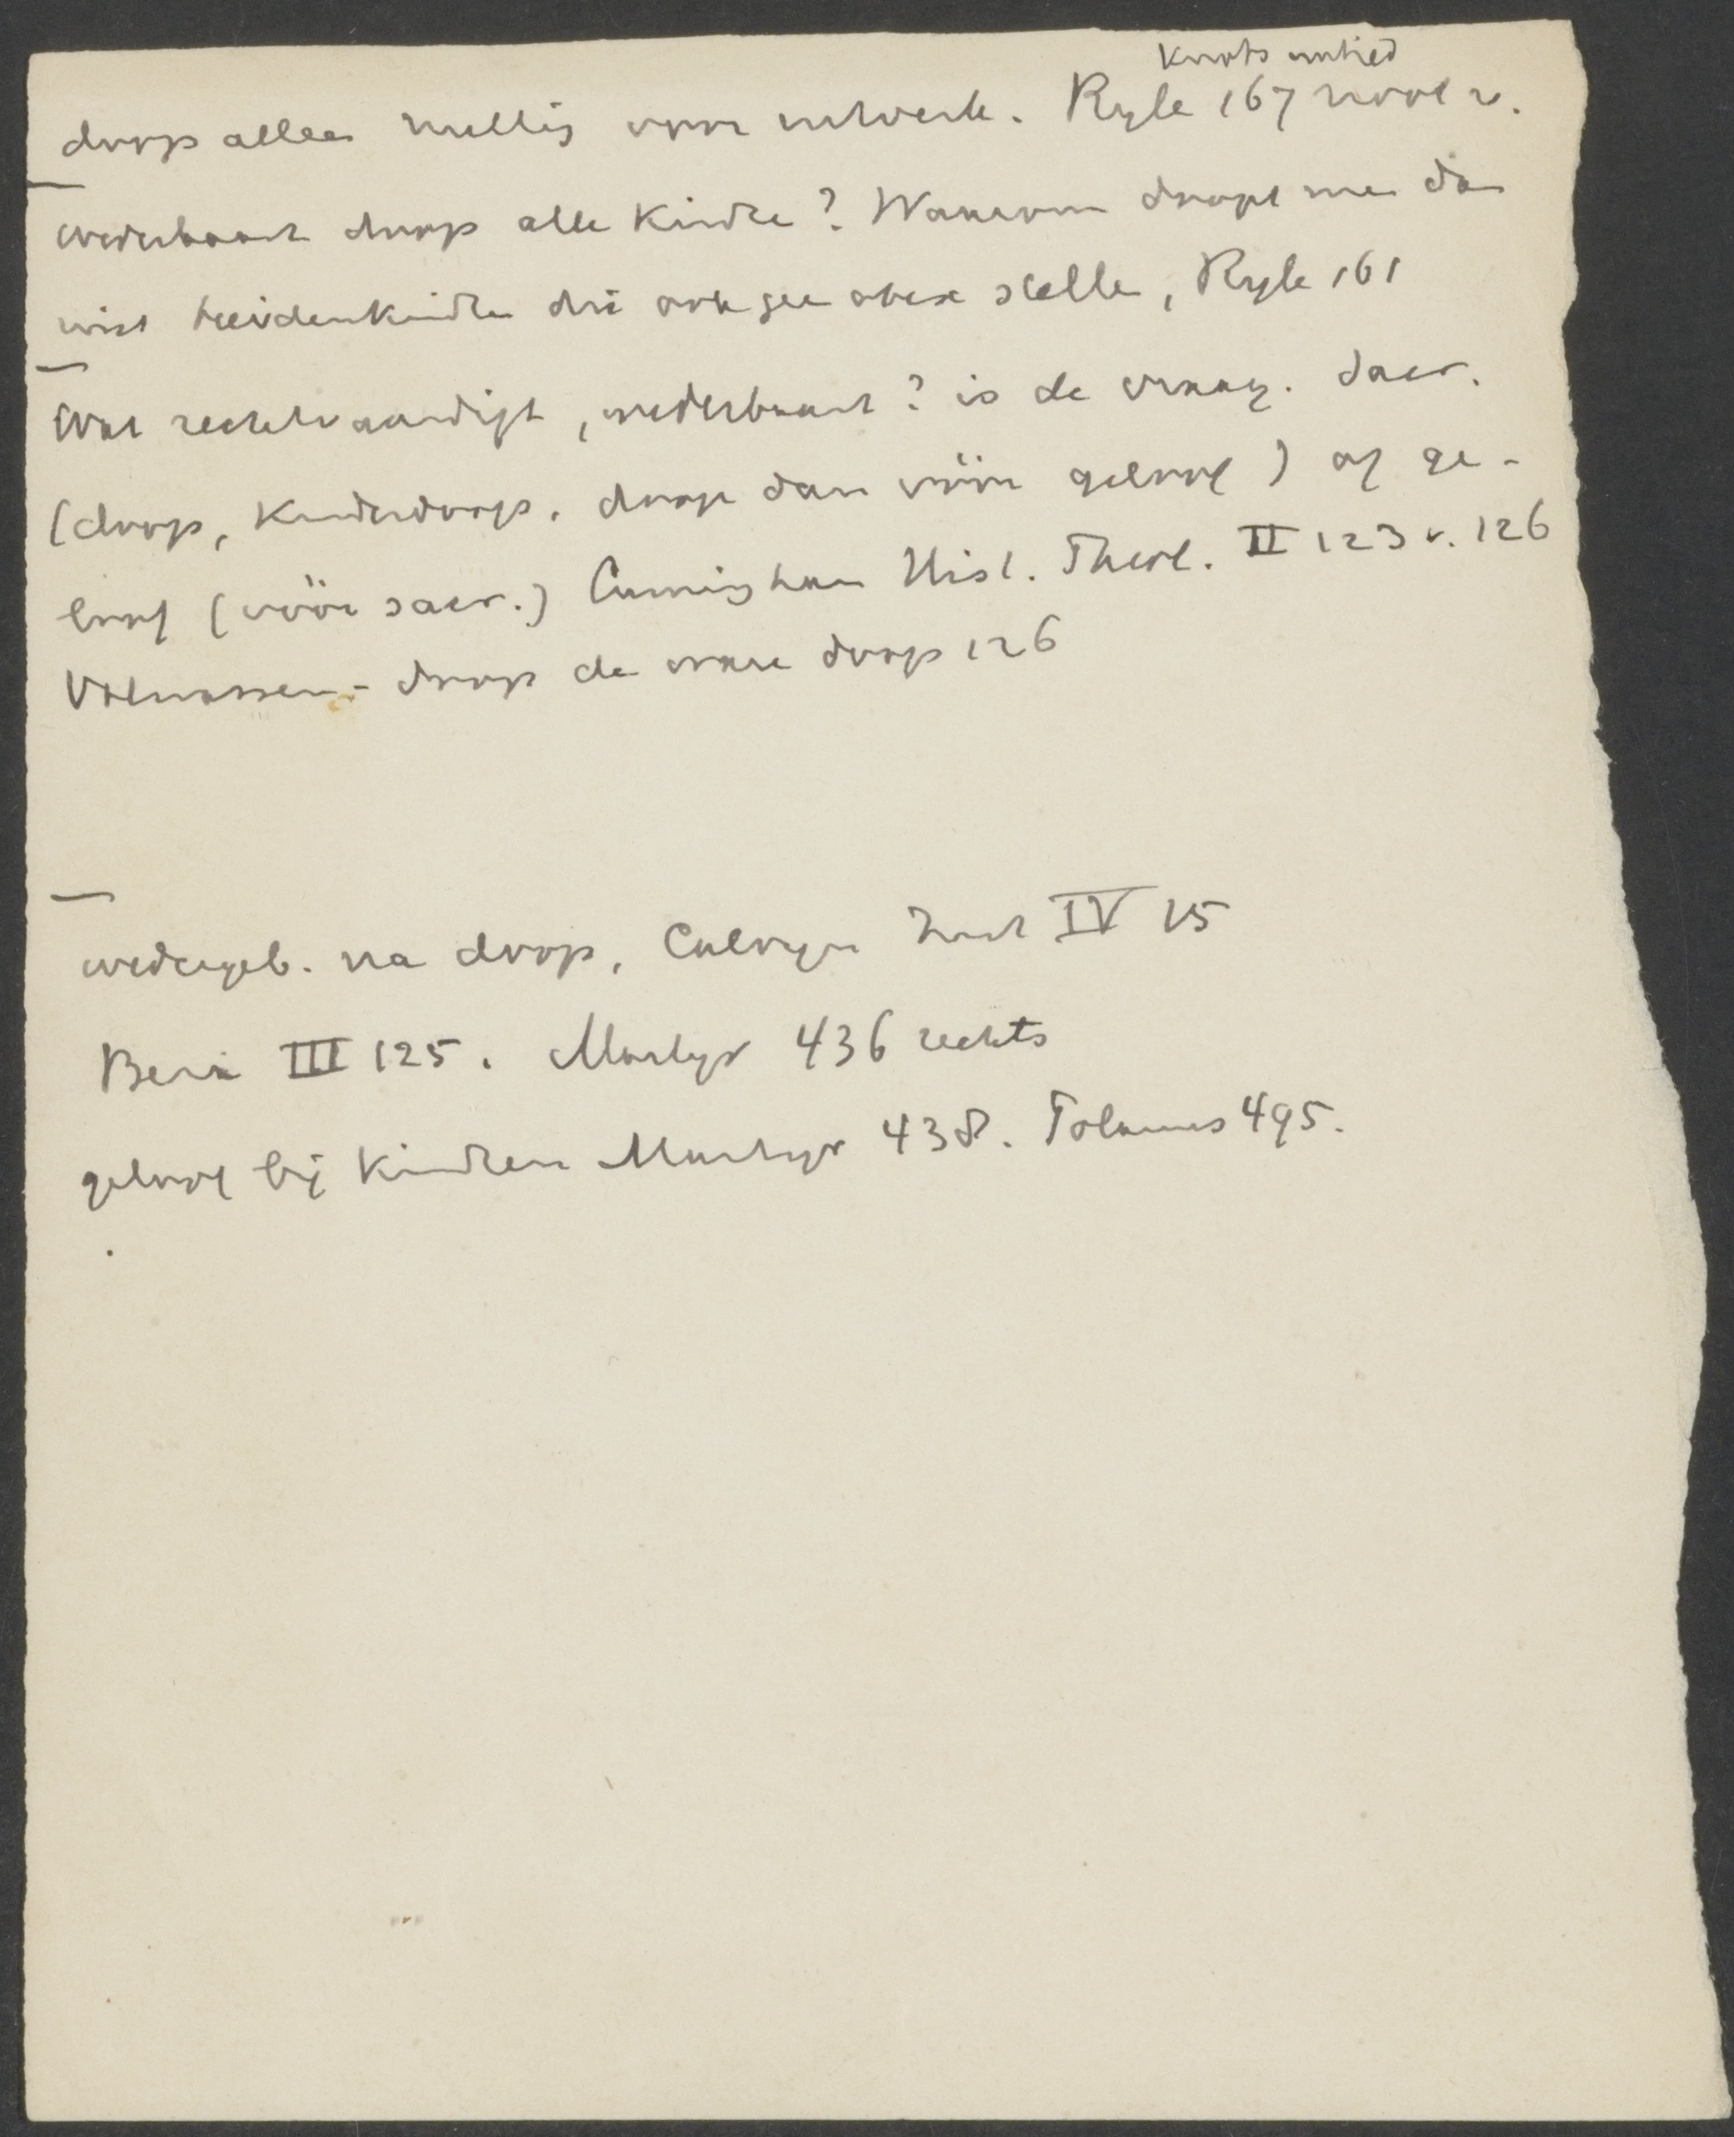 Knots untied
doop alleen nuttig voor uitverk. Ryle 167 noot v.
wederbaart doop alle kindren? Waarom doopt men dan
niet heidenkindren die ook geen obex stellen, Ryle 161
Wat rechtvaardigt, wederbaart? is de vraag. Sacr.
(doop, kinderdoop, doop dan vóór geloof) of ge-
loof (vóór sacr.) Cunningham Hist. Theol. II 123 v. 126
Volwassen-doop de ware doop 126
wedergeb. na doop, Calvijn Inst IV 15
Beza III 125. Martyr 436 rechts
geloof bij kindren Martyr 438. Polanus 495.